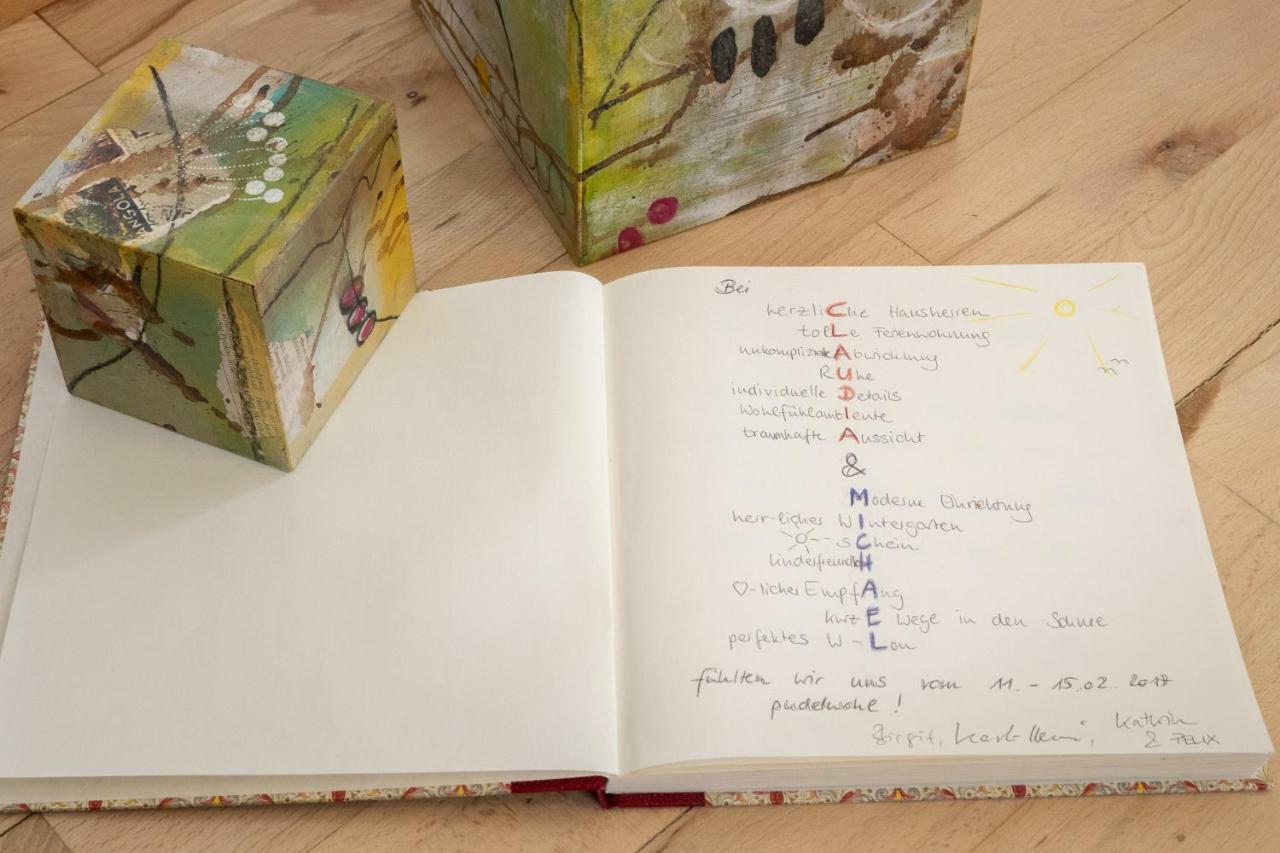 Bei
herzliChe Hausherren
toLLe Ferienwohnung
Abwicklung
RUhe
individuelle Details
WohlfühlambIente
traumhafte Aussicht
&
Moderne Einrichtung
herr-licher WIntergarten
-sChein
kinderfreundlicH
♡-licher EmpfAng
kurzE Wege in den Schnee
perfektes W-Lan
fühlten wir uns vom 11. - 15.02. 2017
pudelwohl !
Birgit, Karl-Heinz, Kathrin
& FELIX